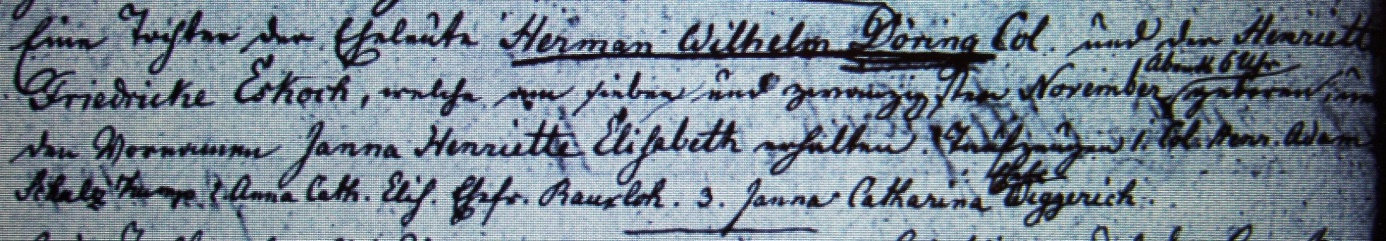 Eine Tochter der Eheleute Herman Wilhelm Döring Col. und der Henriett
Friedricke Eskoch, welche am sieben und zwanzigsten November Abends 6 Uhr geboren, um
den Vornamen Janna Henriette Elisabeth erhalten. Taufzeugen 1. Col. Henr. Adam
2 Anna Cath. Elis. Ehefr. 3. Janna Catharina Wiggerich.